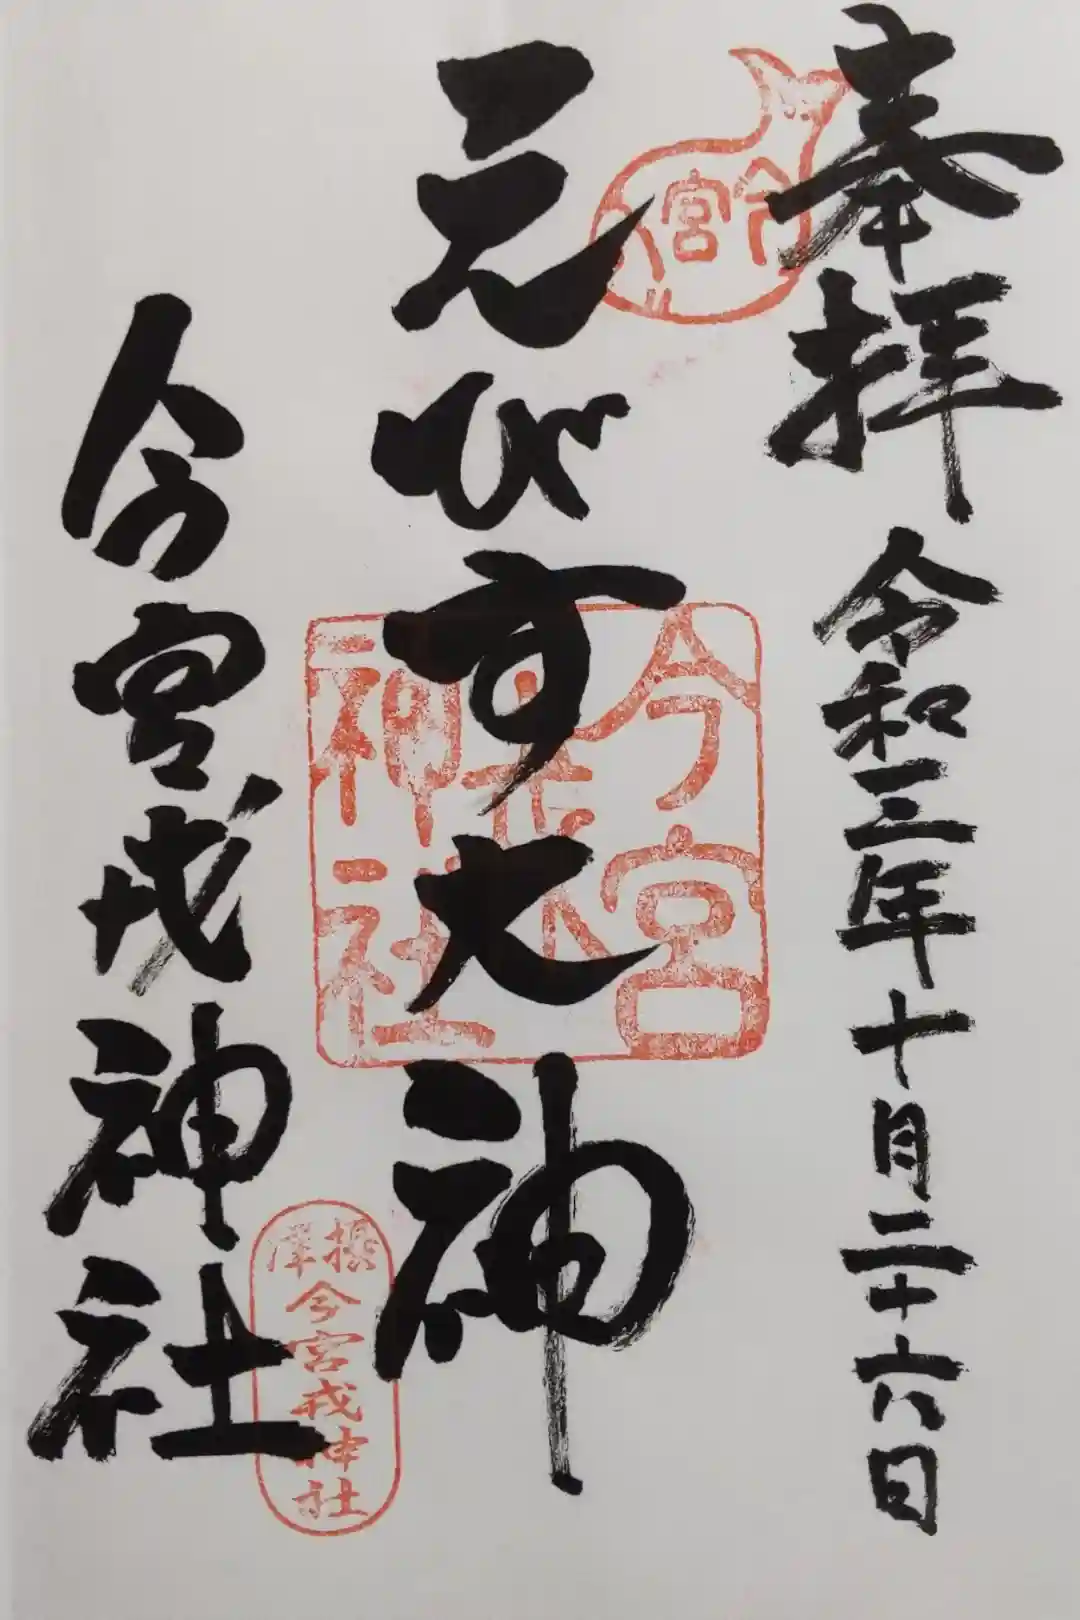 奉拝 令和三年十月二十六日
今宮
えびす大神
今宮
神社
今宮戎神社
今宮戎神社